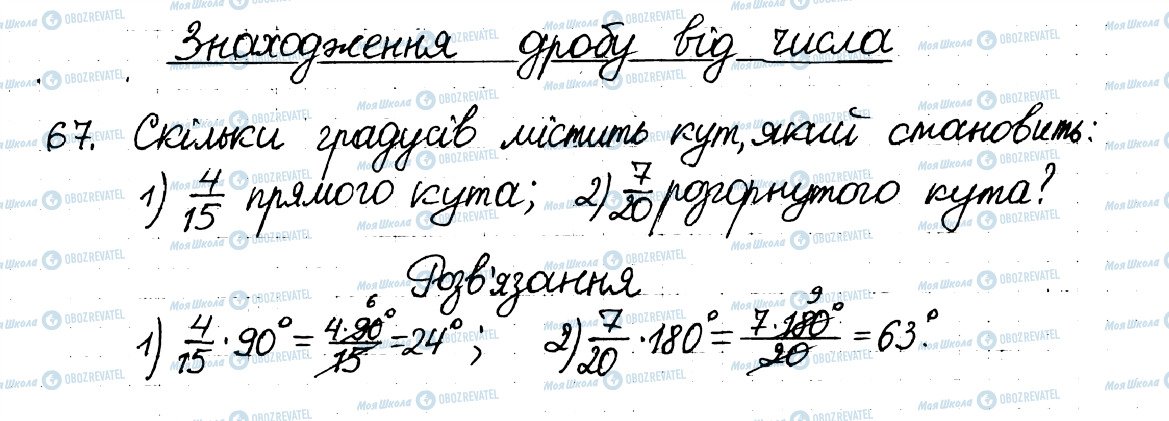 Знаходження дробу від числа
67. Скільки градусів містить кут, який становить:
1) 4/15 прямого кута; 2) 7/20 розгорнутого кута?
Розв'язання
1) 4/15 · 90° = 4·90°/15 6 = 24°; 2) 7/20 · 180° = 7·180°/20 9 = 63°.
Моя Школа OBOZREVATEL